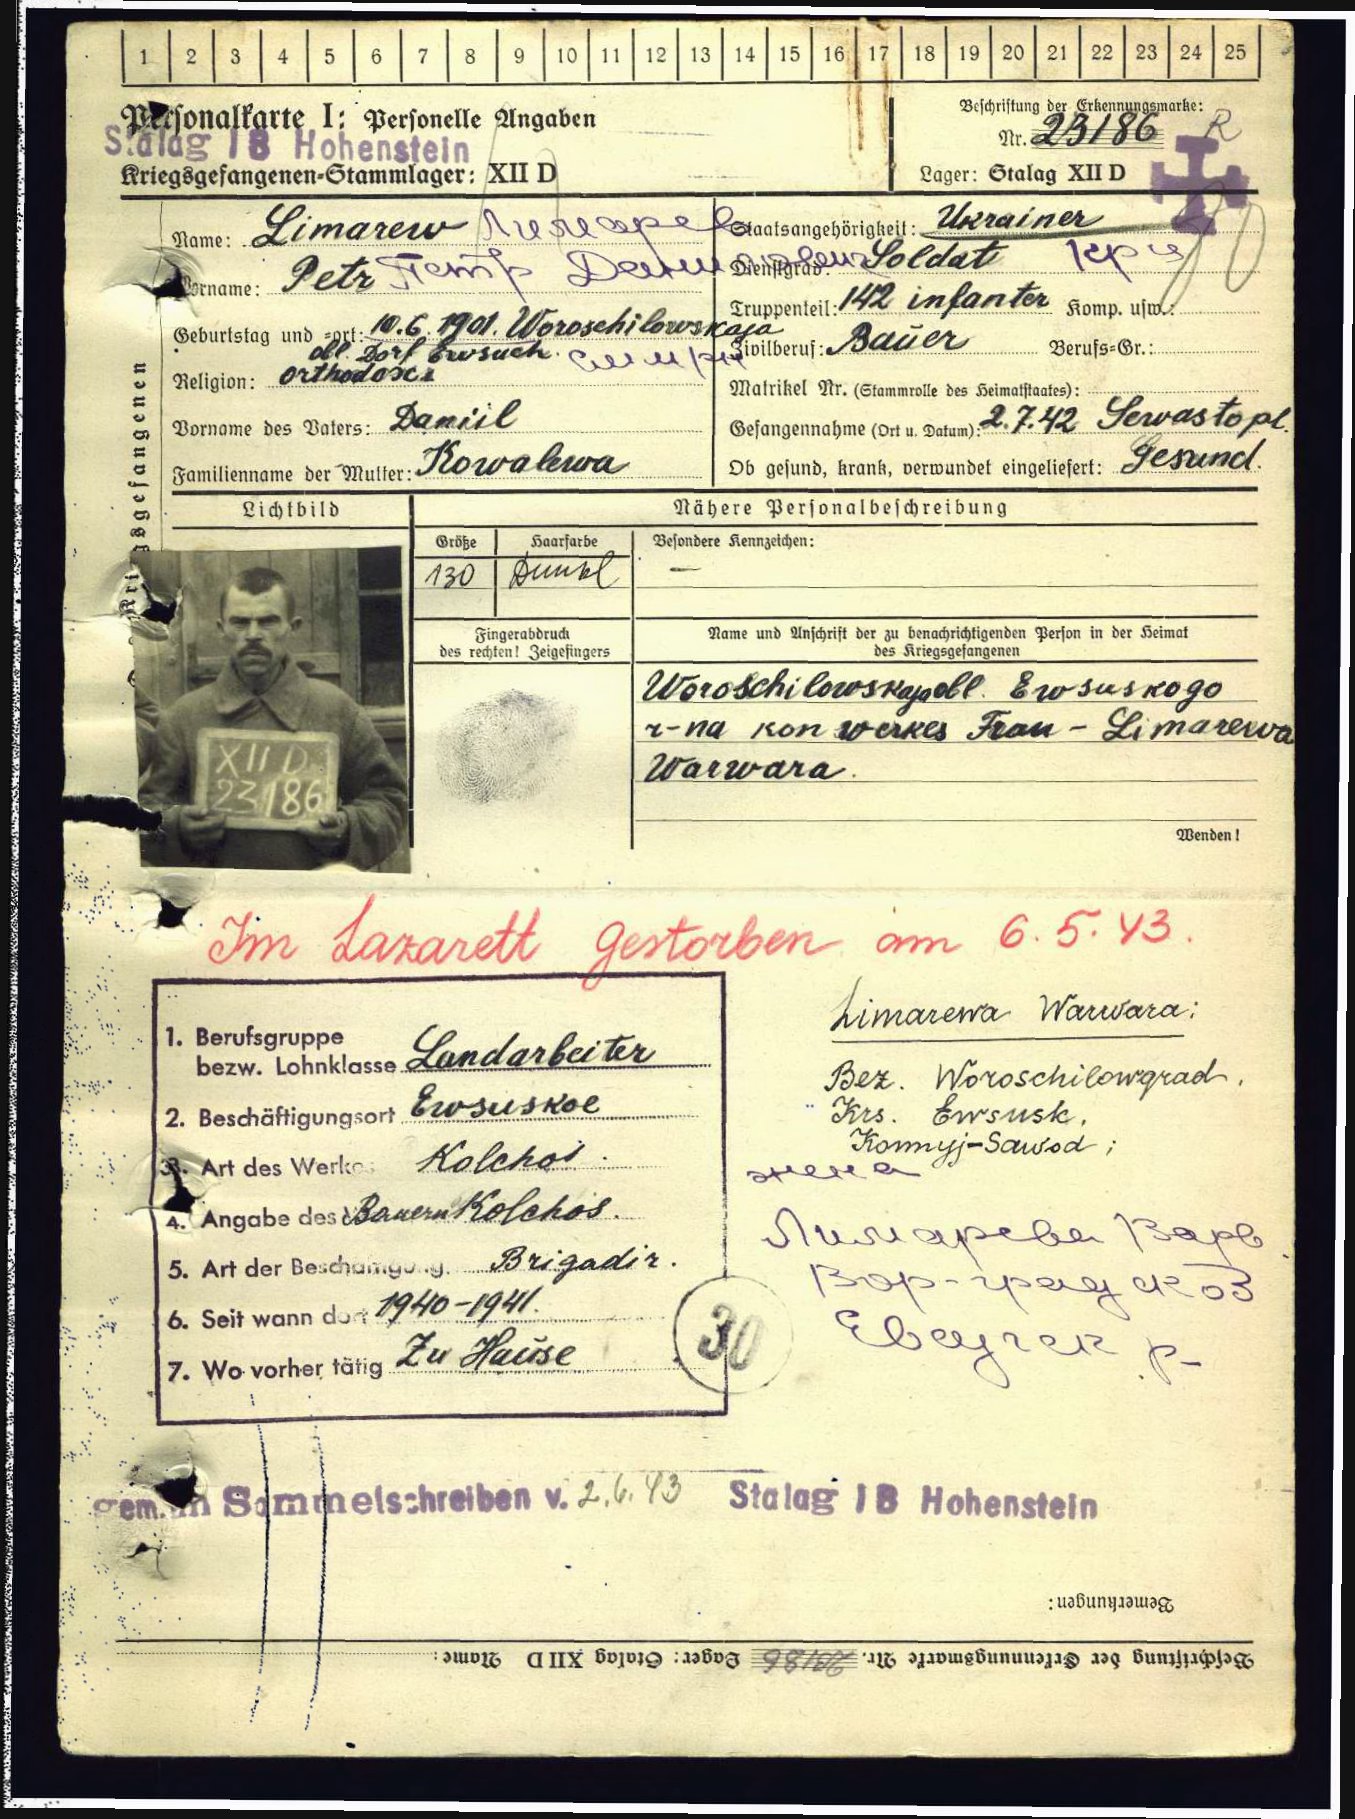 1 2 3 4 5 6 7 8 9 10 11 12 13 14 15 16 17 18 19 20 21 22 23 24 25
Personalkarte I: Personelle Angaben
Stalag I B Hohenstein
Kriegsgefangenen-Stammlager: XII D
Beschriftung der Erkennungsmarke:
Nr. 23186 R
Lager: Stalag XII D
Name: Limarew Лимарев
Vorname: Petr Петр
Geburtstag und -ort: 10.6.1901. Woroschilowskaja
obl. Dorf Ewsuch.
Religion: orthodox
Vorname des Vaters: Daniil
Familienname der Mutter: Kowalewa
Staatsangehörigkeit: Ukrainer
Dienstgrad: Soldat
Truppenteil: 142 infanter Komp. usw.:
Zivilberuf: Bauer Berufs-Gr.:
Matrikel Nr. (Stammrolle des Heimatstaates):
Gefangennahme (Ort u. Datum): 2.7.42 Sewastopl.
Ob gesund, krank, verwundet eingeliefert: Gesund.
Lichtbild
Nähere Personalbeschreibung
Größe Haarfarbe Besondere Kennzeichen:
130 Dunkl —
Fingerabdruck
des rechten! Zeigefingers
Name und Anschrift der zu benachrichtigenden Person in der Heimat
des Kriegsgefangenen
Woroschilowskaja obl. Ewsuskogo
r-na kon werkes Frau - Limarewa
Warwara.
XII D.
23186
Wenden!
Im Lazarett gestorben am 6.5.43.
1. Berufsgruppe
bezw. Lohnklasse Landarbeiter
2. Beschäftigungsort Ewsuskoe
3. Art des Werkes Kolchos.
4. Angabe des Bauern Kolchos.
5. Art der Beschäftigung Brigadir.
6. Seit wann dort 1940-1941.
7. Wo vorher tätig Zu Hause
30
Limarewa Warwara:
Bez. Woroschilowgrad,
Krs. Ewsusk,
Konnyj-Sawod;
жена
Лимарева Варв.
Вор-градск об
Евсугск р-
gem. in Sammelschreiben v. 2.6.43 Stalag I B Hohenstein
Bemerkungen:
Beschriftung der Erkennungsmarke Nr. 23186 Lager: Stalag XII D Name: